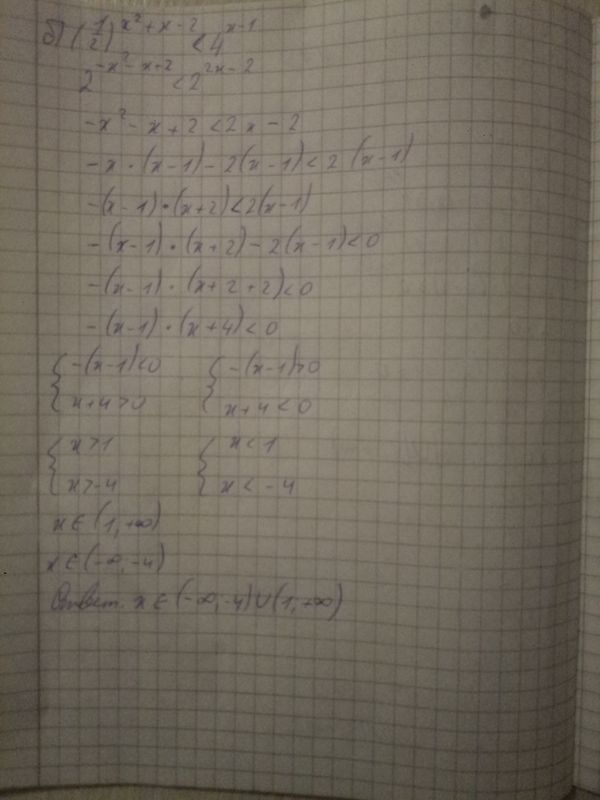 б) (1/2)^(x²+x-2) < 4^(x-1)
2^(-x²-x+2) < 2^(2x-2)
-x²-x+2<2x-2
-x·(x-1)-2(x-1)<2(x-1)
-(x-1)·(x+2)<2(x-1)
-(x-1)·(x+2)-2(x-1)<0
-(x-1)·(x+2+2)<0
-(x-1)·(x+4)<0
{ -(x-1)<0 { -(x-1)>0
x+4>0 x+4<0
{ x>1 { x<1
x>-4 x<-4
x∈(1,+∞)
x∈(-∞,-4)
Ответ. x∈(-∞,-4)∪(1,+∞)